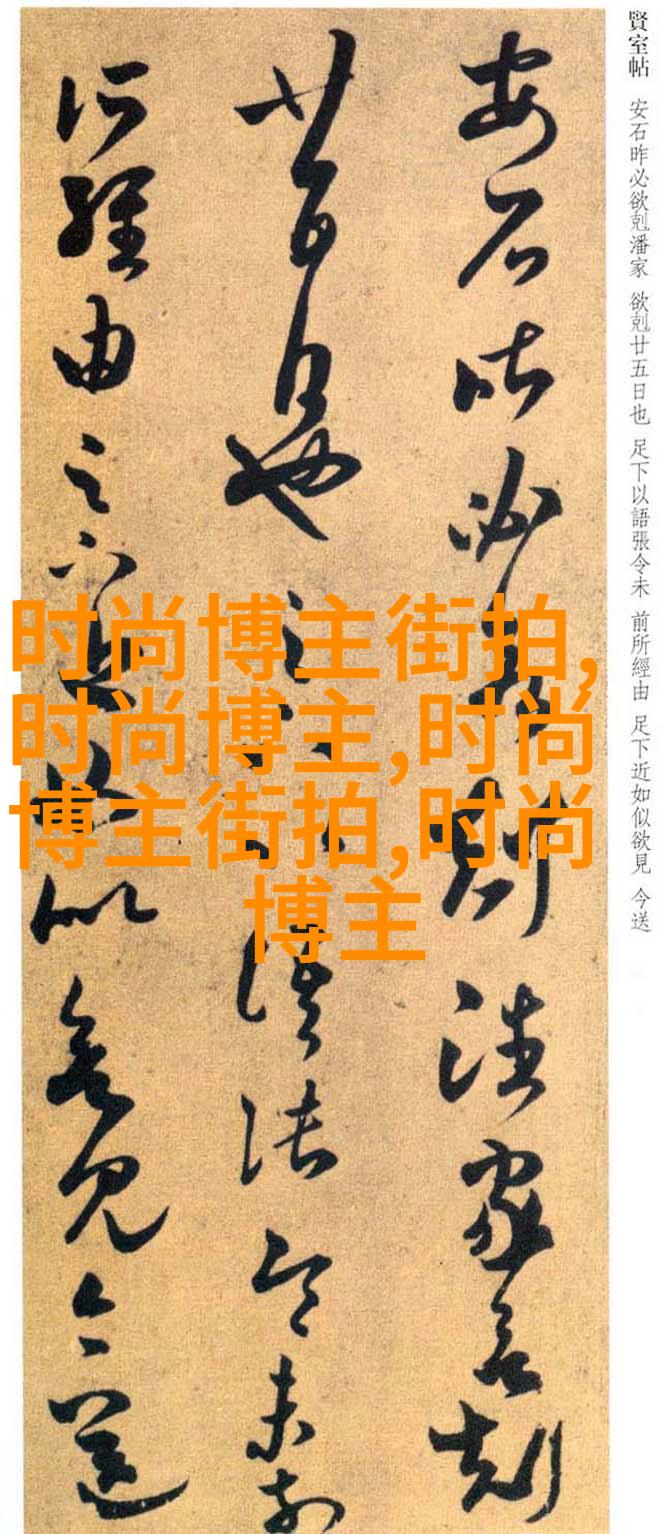 賢室帖 安石昨必欲剋潘家 欲剋廿五日也 足下以語張令未 前所經由 足下近如似欲見 今送
安石昨必欲剋潘家欲剋
廿五日也足下以語張令未前
所經由足下近如似欲見今送
时尚博主街拍,
时尚博主,时尚
博主街拍,时尚
博主